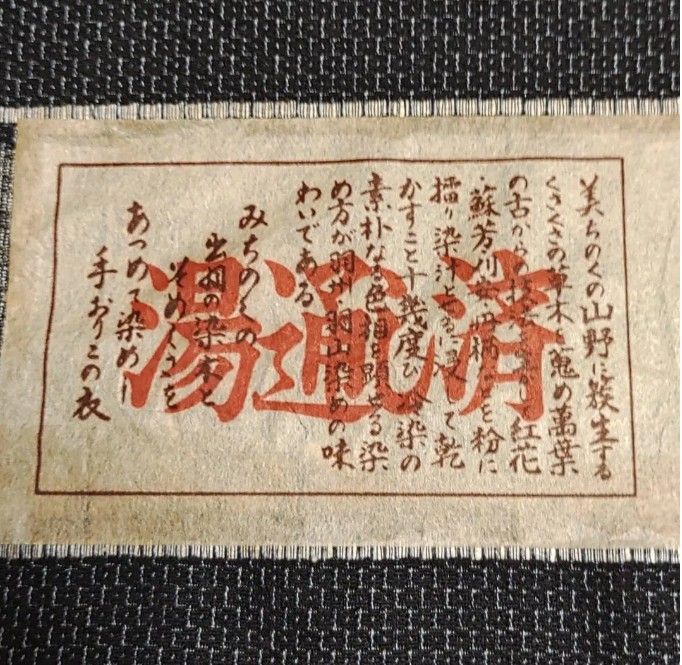 美ちのくの山野に簇生する
くさくさの草木を蒐め萬葉
の古からの して紅花
・蘇芳刈安丹柄などを粉に
擂り染汁 に浸して乾
かすこと十幾度び 染の
素朴なる色相を顕せる染
め方が羽州・羽山染めの味
わいである
みちのくの
出羽の染木と
そめくさを
あつめて染めし
手おりこの衣
湯通済